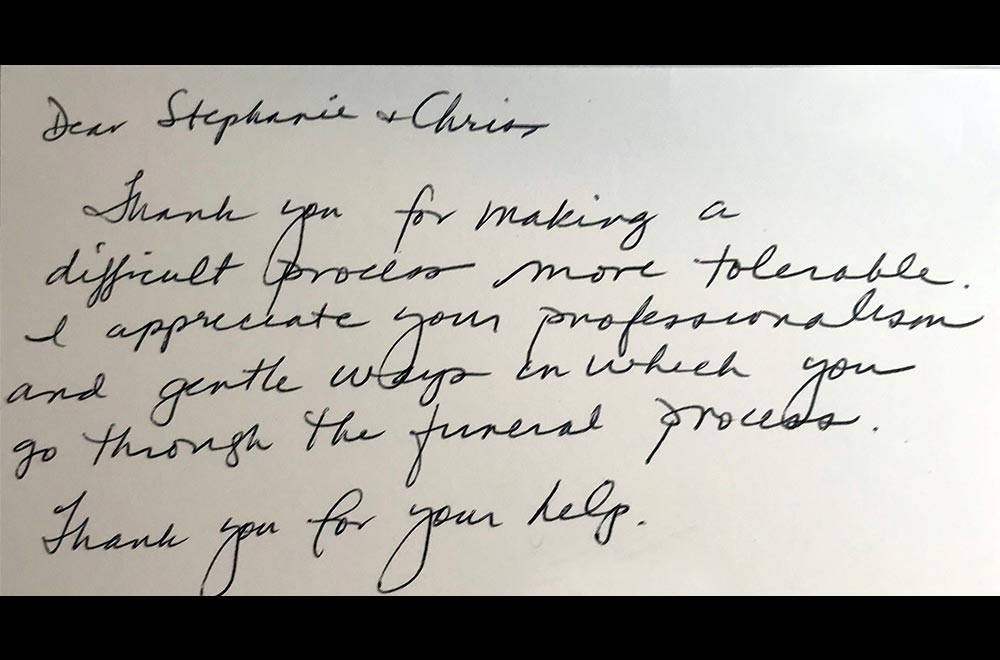 Dear Stephanie + Chris
Thank you for making a
difficult process more tolerable.
I appreciate your professionalism
and gentle ways in which you
go through the funeral process.
Thank you for your help.